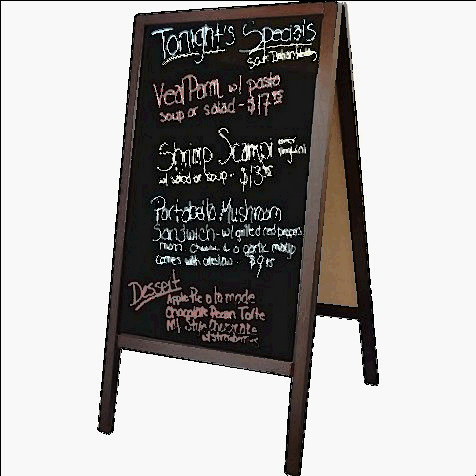 Tonight's Specials
Veal Parm w/ pasta
soup or salad - $17.95
Shrimp Scampi over
w/ salad or soup - $13.95
Portabello Mushroom
Sandwich - w/ grilled red peppers
mozz. cheese & a garlic mayo
comes with coleslaw $9.95
Dessert
Apple Pie a la mode
Chocolate Pecan Torte
NY Style Cheesecake
w/ strawberries